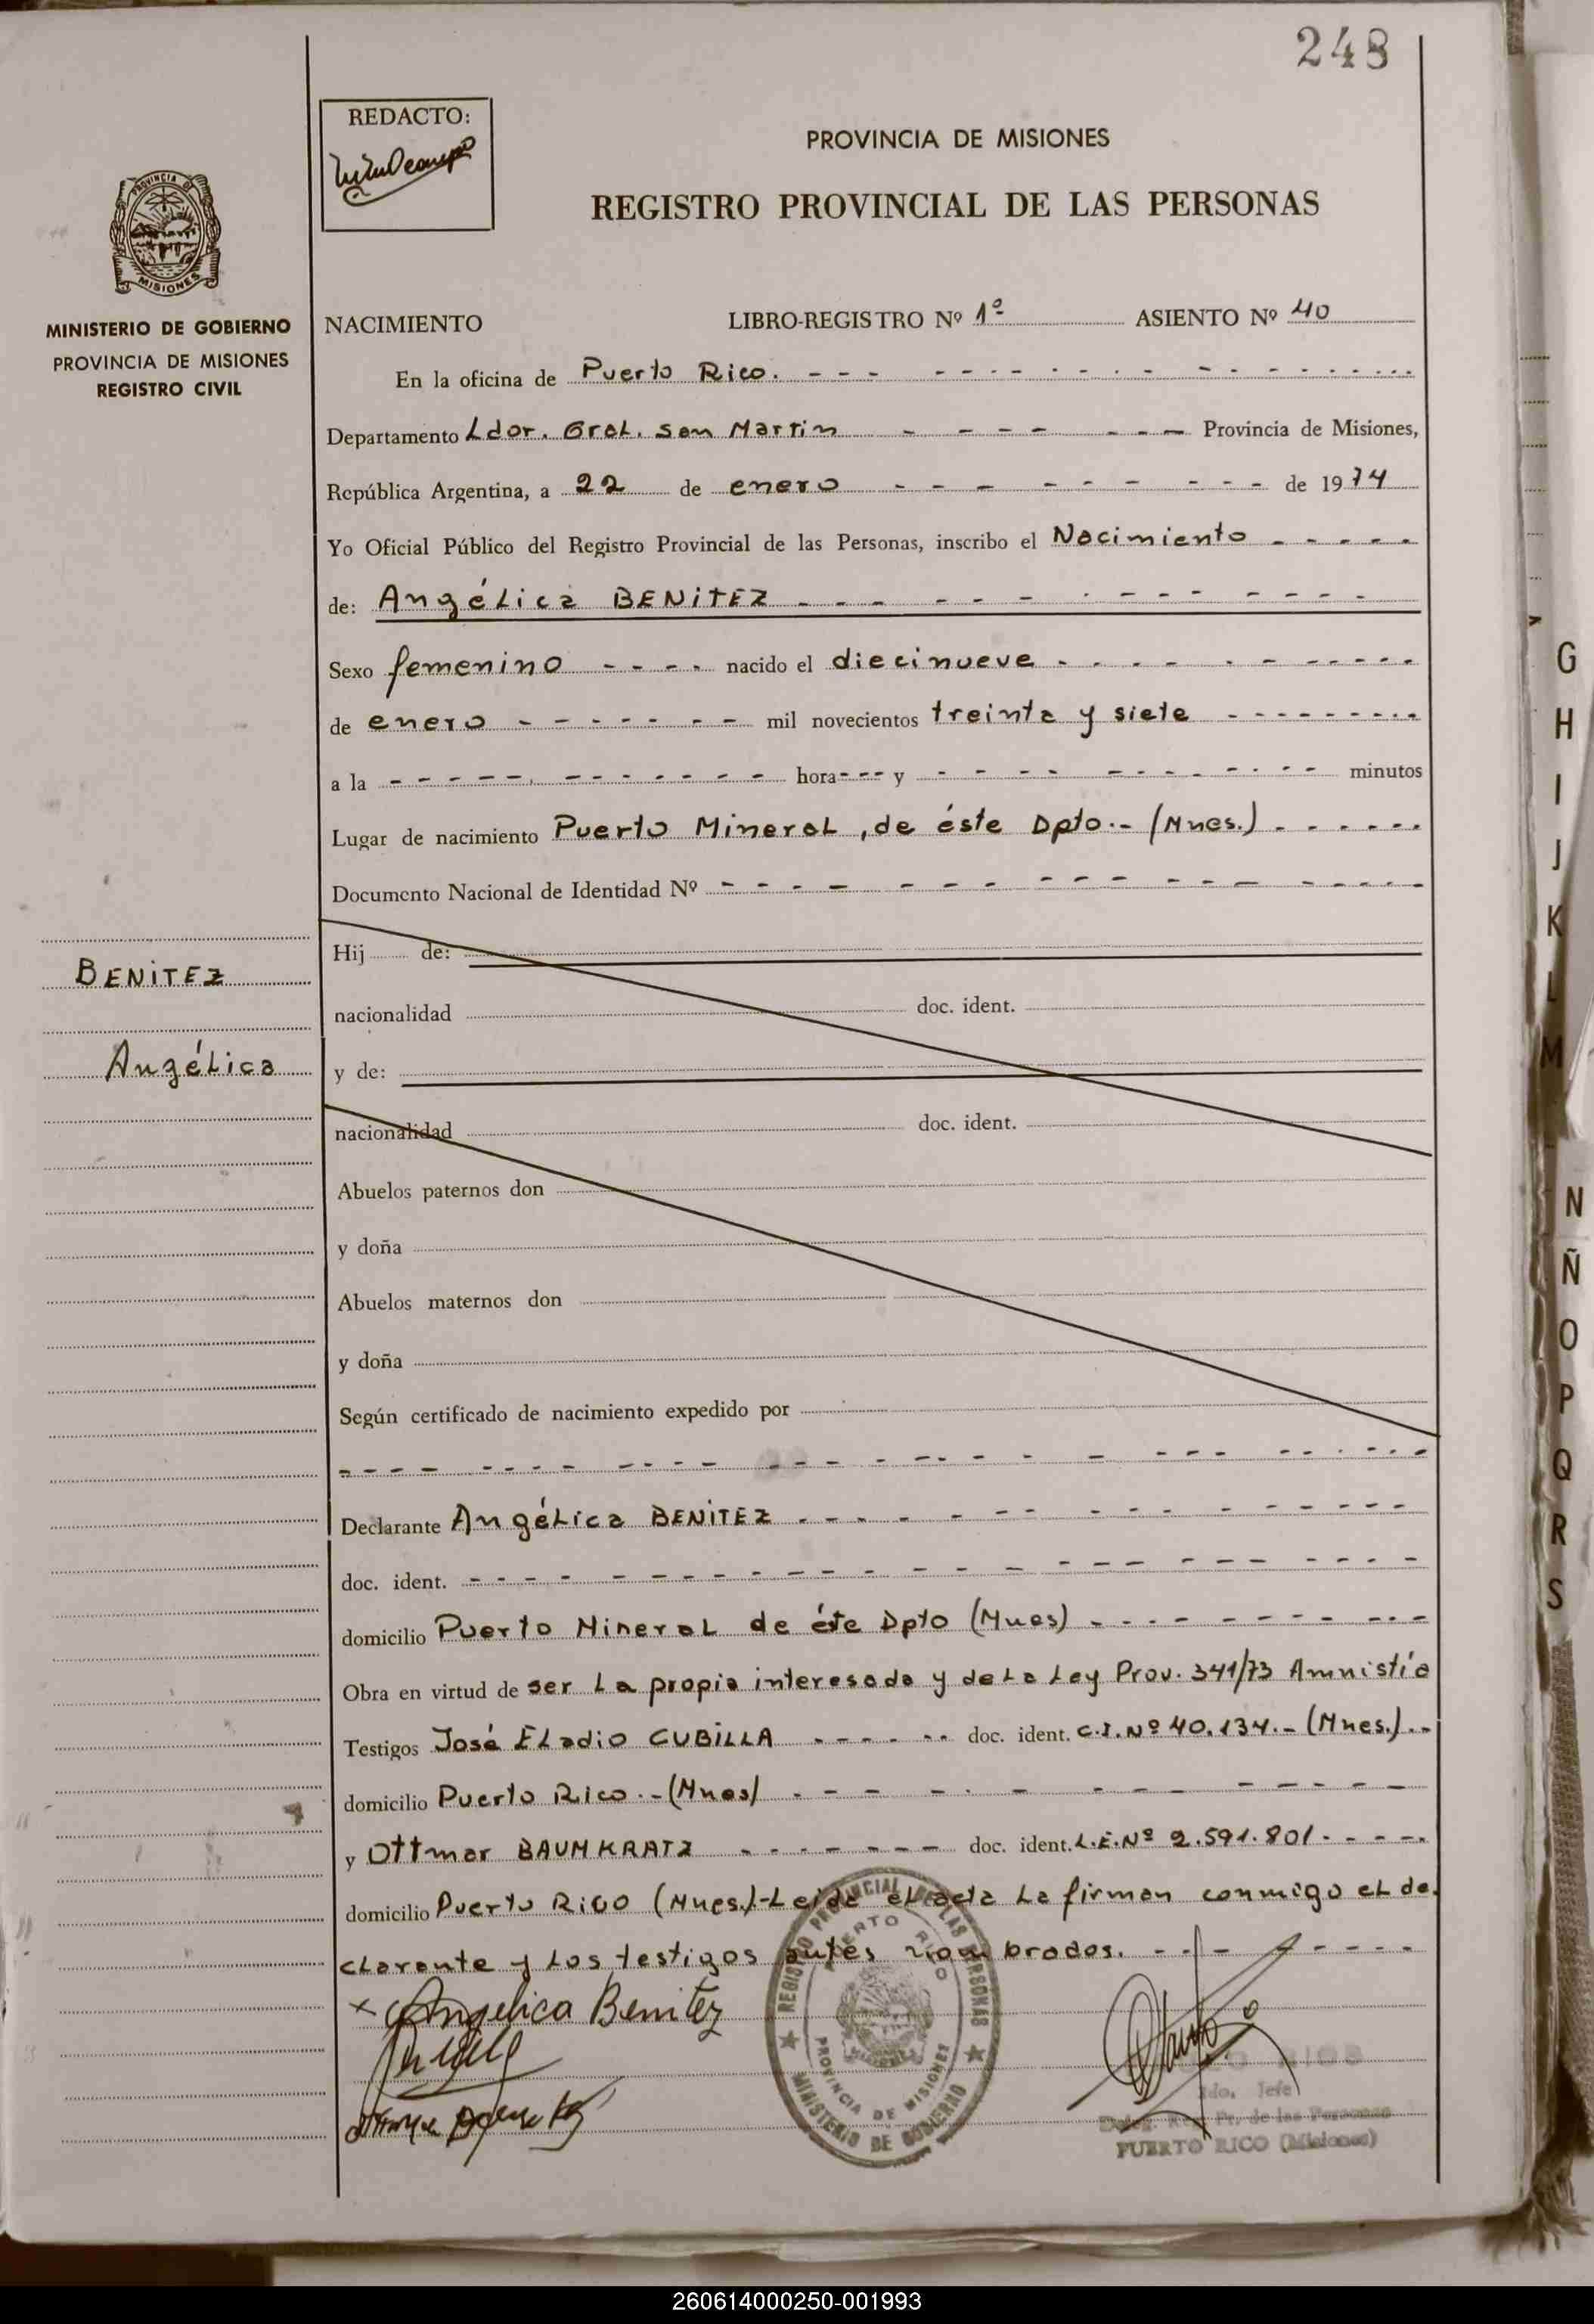 248
REDACTO:
PROVINCIA DE MISIONES
REGISTRO PROVINCIAL DE LAS PERSONAS
PROVINCIA DE
MISIONES
MINISTERIO DE GOBIERNO
PROVINCIA DE MISIONES
REGISTRO CIVIL
NACIMIENTO LIBRO-REGISTRO Nº 1º ASIENTO Nº 40
En la oficina de Puerto Rico. - - - - - - - - - - - -
Departamento Ldor. Gral. San Martin - - - - - - - Provincia de Misiones,
República Argentina, a 22 de enero - - - - - - - - - de 1974
Yo Oficial Público del Registro Provincial de las Personas, inscribo el Nacimiento - - - - -
de: Angélica BENITEZ - - - - - - - - - - - -
Sexo femenino - - - - nacido el diecinueve - - - - - - - - - -
de enero - - - - - - - mil novecientos treinta y siete - - - - - - - - -
a la - - - - - - - - - - - - hora - - - y - - - - - - - - - - - - minutos
Lugar de nacimiento Puerto Mineral, de éste Dpto.- (Mnes.) - - - - - -
Documento Nacional de Identidad Nº - - - - - - - - - - - - - - - -
Hij de:
BENITEZ
nacionalidad doc. ident.
Angélica
y de:
nacionalidad doc. ident.
Abuelos paternos don
y doña
Abuelos maternos don
y doña
Según certificado de nacimiento expedido por
- - - - - - - - - - - - - - - - - - - - - - - -
Declarante Angélica BENITEZ - - - - - - - - - - - - - -
doc. ident. - - - - - - - - - - - - - - - - - - - - -
domicilio Puerto Mineral de éste Dpto (Mnes) - - - - - - - - - -
Obra en virtud de ser la propia interesada y de la Ley Prov. 341/73 Amnistía
Testigos José Eladio CUBILLA - - - - - - doc. ident. C.I. Nº 40.134.- (Mnes.).-
domicilio Puerto Rico.- (Mnes) - - - - - - - - - - - - -
y Ottmar BAUMKRATZ - - - - - - - doc. ident. L.E. Nº 2.591.801 - - - - -
domicilio Puerto Rico (Mnes.)-Leida el acta la firman conmigo el de-
clarante y los testigos antes nombrados. - - - - - - - -
x Angelica Benitez
REGISTRO PROVINCIAL DE LAS PERSONAS
PUERTO RICO
PROVINCIA DE MISIONES
MINISTERIO DE GOBIERNO
Jefe
Deleg. Reg. Pr. de las Personas
PUERTO RICO (Misiones)
G
H
I
J
K
L
M
N
Ñ
O
P
Q
R
S
260614000250-001993